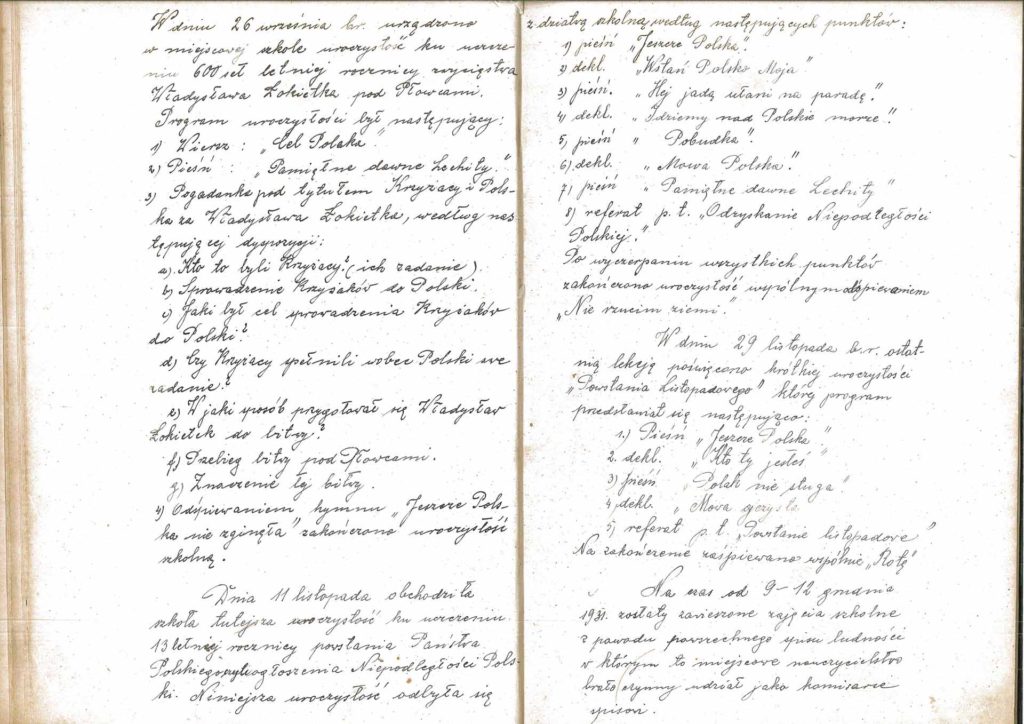 W dniu 26 września br. urządzono
w miejscowej szkole uroczystość ku uczcze-
niu 600 set letniej rocznicy zwycięstwa
Władysława Łokietka pod Płowcami.
Program uroczystości był następujący:
1) Wiersz : „Cel Polaka”
2) Pieśń : „Pamiętne dawne Lechity.”
3) Pogadanka pod tytułem Krzyżacy i Pols-
ka za Władysława Łokietka, według nas
tępującej dyspozycji:
a) Kto to byli Krzyżacy? (ich zadanie)
b) Sprowadzenie Krzyżaków do Polski.
c) Jaki był cel sprowadzenia Krzyżaków
do Polski?
d) Czy Krzyżacy spełnili wobec Polski swe
zadanie?
e) W jaki sposób przygotował się Władysław
Łokietek do bitwy?
f) Przebieg bitwy pod Płowcami.
g) Znaczenie tej bitwy.
4) Odśpiewaniem hymnu „Jeszcze Pols-
ka nie zginęła” zakończono uroczystość
szkolną.
Dnia 11 listopada obchodziła
szkoła tutejsza uroczystość ku uczczeniu
13 letniej rocznicy powstania Państwa
Polskiego ogłoszenia Niepodległości Pols-
ki. Niniejsza uroczystość odbyła się
z dziatwą szkolną według następujących punktów:
1) pieśń „Jeszcze Polska”.
2) dekl. „Wstań Polsko Moja”
3) pieśń. „Hej jadą ułani na paradę.”
4) dekl. „Idziemy nad Polskie morze.”
5) pieśń „Pobudka.”
6) dekl. „Mowa Polska.”
7) pieśń „Pamiętne dawne Lechity”
8) referat p. t. „Odzyskanie Niepodległości
Polskiej.”
Po wyczerpaniu wszystkich punktów
zakończono uroczystość wspólnym odśpiewaniem
„Nie rzucim ziemi”.
W dniu 29 listopada b.r. ostat-
nią lekcję poświęcono krótkiej uroczystości
„Powstania Listopadowego” której program
przedstawiał się następująco:
1.) Pieśń „Jeszcze Polska”.
2. dekl. „Kto ty jesteś”
3) pieśń „Polak nie sługa”
4. dekl. „Mowa
5) referat p. t. „Powstanie listopadowe”
Na zakończenie zaśpiewano wspólnie „Rotę”
Na czas od 9-12 grudnia
1931. zostały zawieszone zajęcia szkolne
z powodu powszechnego spisu ludności
w którym to miejscowe nauczycielstwo
brało czynny udział jako komisarze
spisowi.